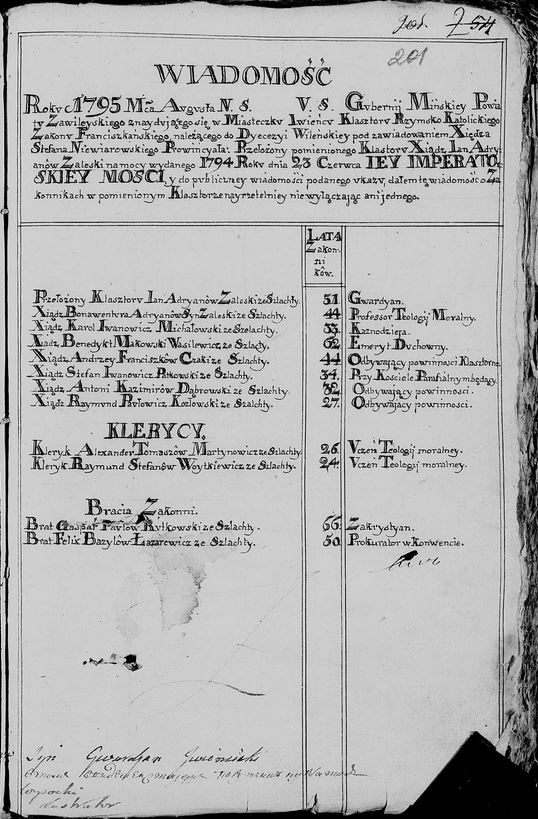 54
201
WIADOMOŚĆ
Roku 1795 Mca Avgvsta N. S. V. S. Gvbernij Mińskiey Powia
tv Zawileyskiego znaydvjącego się w Miasteczkv Iwieńcv Klasztorv Rzymsko Katolickiego
Zakonv Franciszkańskiego, należącego do Dyecezyi Wileńskiey pod zawiadowaniem Xiędza
Stefana Niewiarowskiego Prowincyała. Przełożony pomienionego Klasztorv Xiądz Ian Adry-
anów Zaleski na mocy wydanego 1794 Rokv dnia 23 Czerwca IEY IMPERATO-
SKIEY MOŚCI, y do pvbliczney wiadomości podanego vkazv, dałem tę wiadomość o Za
konnikach w pomienionym Klasztorze nayrzetelniey nie wyłączając ani jednego.
LATA
Zakon-
ni
ków.
Przełożony Klasztorv Ian Adryanów Zaleski ze Szlachty. 51 Gwardyan.
Xiądz Bonawentvra Adryanów Syn Zaleski ze Szlachty. 44 Professor Teologij Moralny.
Xiądz Karol Iwanowicz Michałowski ze Szelachty. 53. Kaznodzieja.
Xiądz Benedykt Makowski Wasilewicz, ze Szlachty. 62. Emeryt Dvchowny.
Xiądz Andrzey Franciszków Czaki ze Szlachty. 44 Odbywający powinności Klasztorne
Xiądz Stefan Iwanowicz Pvtkowski ze Szlachty. 34. Przy Kościele Parafialnym będący.
Xiądz Antoni Kazimirów Dąbrowski ze Szlachty. 32. Odbywający powinności.
Xiądz Raymvnd Pavłowicz Kozłowski ze Szlachty. 27. Odbywający powinności.
KLERYCY.
Kleryk Alexander Tomaszów Martynowicz ze Szlachty. 26. Vczeń Teologij moralney.
Kleryk Raymund Stefanów Woytkiewicz ze Szlachty. 24. Vczeń Teologij moralney.
Bracia Zakonni.
Brat Gaspar Pavłów Rytkowski ze Szlachty. 66. Zakrystyan.
Brat Felix Bazylów Łazarewicz ze Szlachty. 50. Prokurator w Konwencie.
Gwardyan Iwieniski